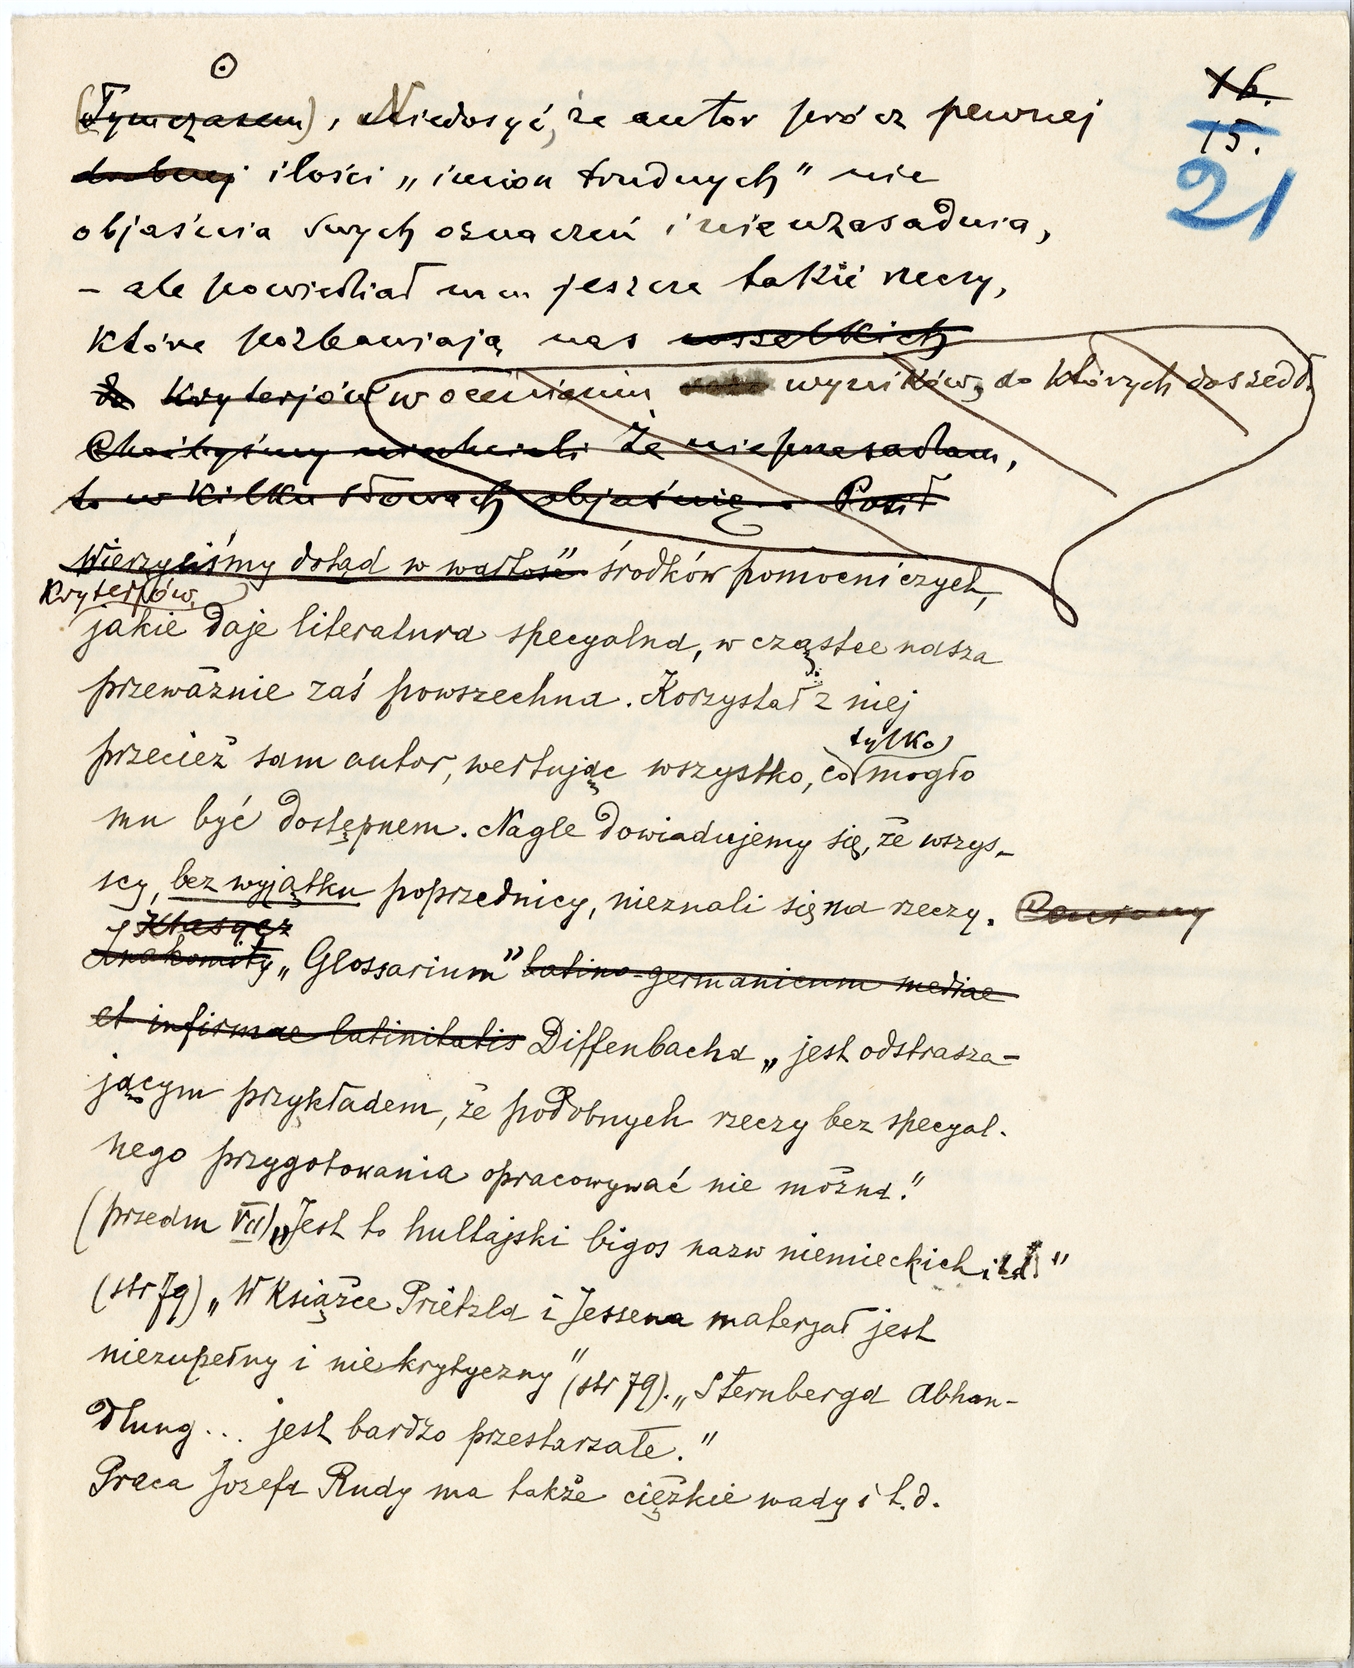 16.
15.
21
(Tymczasem), Niedosyć, że autor prócz pewnej
drobnej ilości „imion trudnych" nie
objaśnia swych oznaczeń i nie uzasadnia,
– ale powiedział nam jeszcze takie rzeczy,
które pozbawiają nas wszelkich
do kryterjów w ocenianiu wyników, do których doszedł.
Choćbyśmy niechcieli Że nie przesadzam,
to w kilku słowach objaśnię. Pozit
Wierzyliśmy dotąd w wartość środków pomocniczych,
Kryterjów
jakie daje literatura specyalna, w cząstce nasza
przeważnie zaś powszechna. Korzystał z niej
tylko
przecież sam autor, wertując wszystko, co mogło
mu być dostępnem. Nagle dowiadujemy się, że wszys–
scy, bez wyjątku poprzednicy, nieznali się na rzeczy.
Klasycz
Znakomity „Glossarium" latino-germanicum mediae
et infirmae latinitatis Diffenbacha „jest odstrasza–
jącym przykładem, że podobnych rzeczy bez specyal-
nego przygotowania opracowywać nie można."
(przedm VII) „Jest to hultajski bigos nazw niemieckich i t.d."
(str 79) „W Książce Prietzla i Jessena materjał jest
niezupełny i niekrytyczny" (str 79). „Sternberga Abhan–
dlung... jest bardzo przestarzałe."
Praca Jozefa Rudy ma także ciężkie wady i t.d.